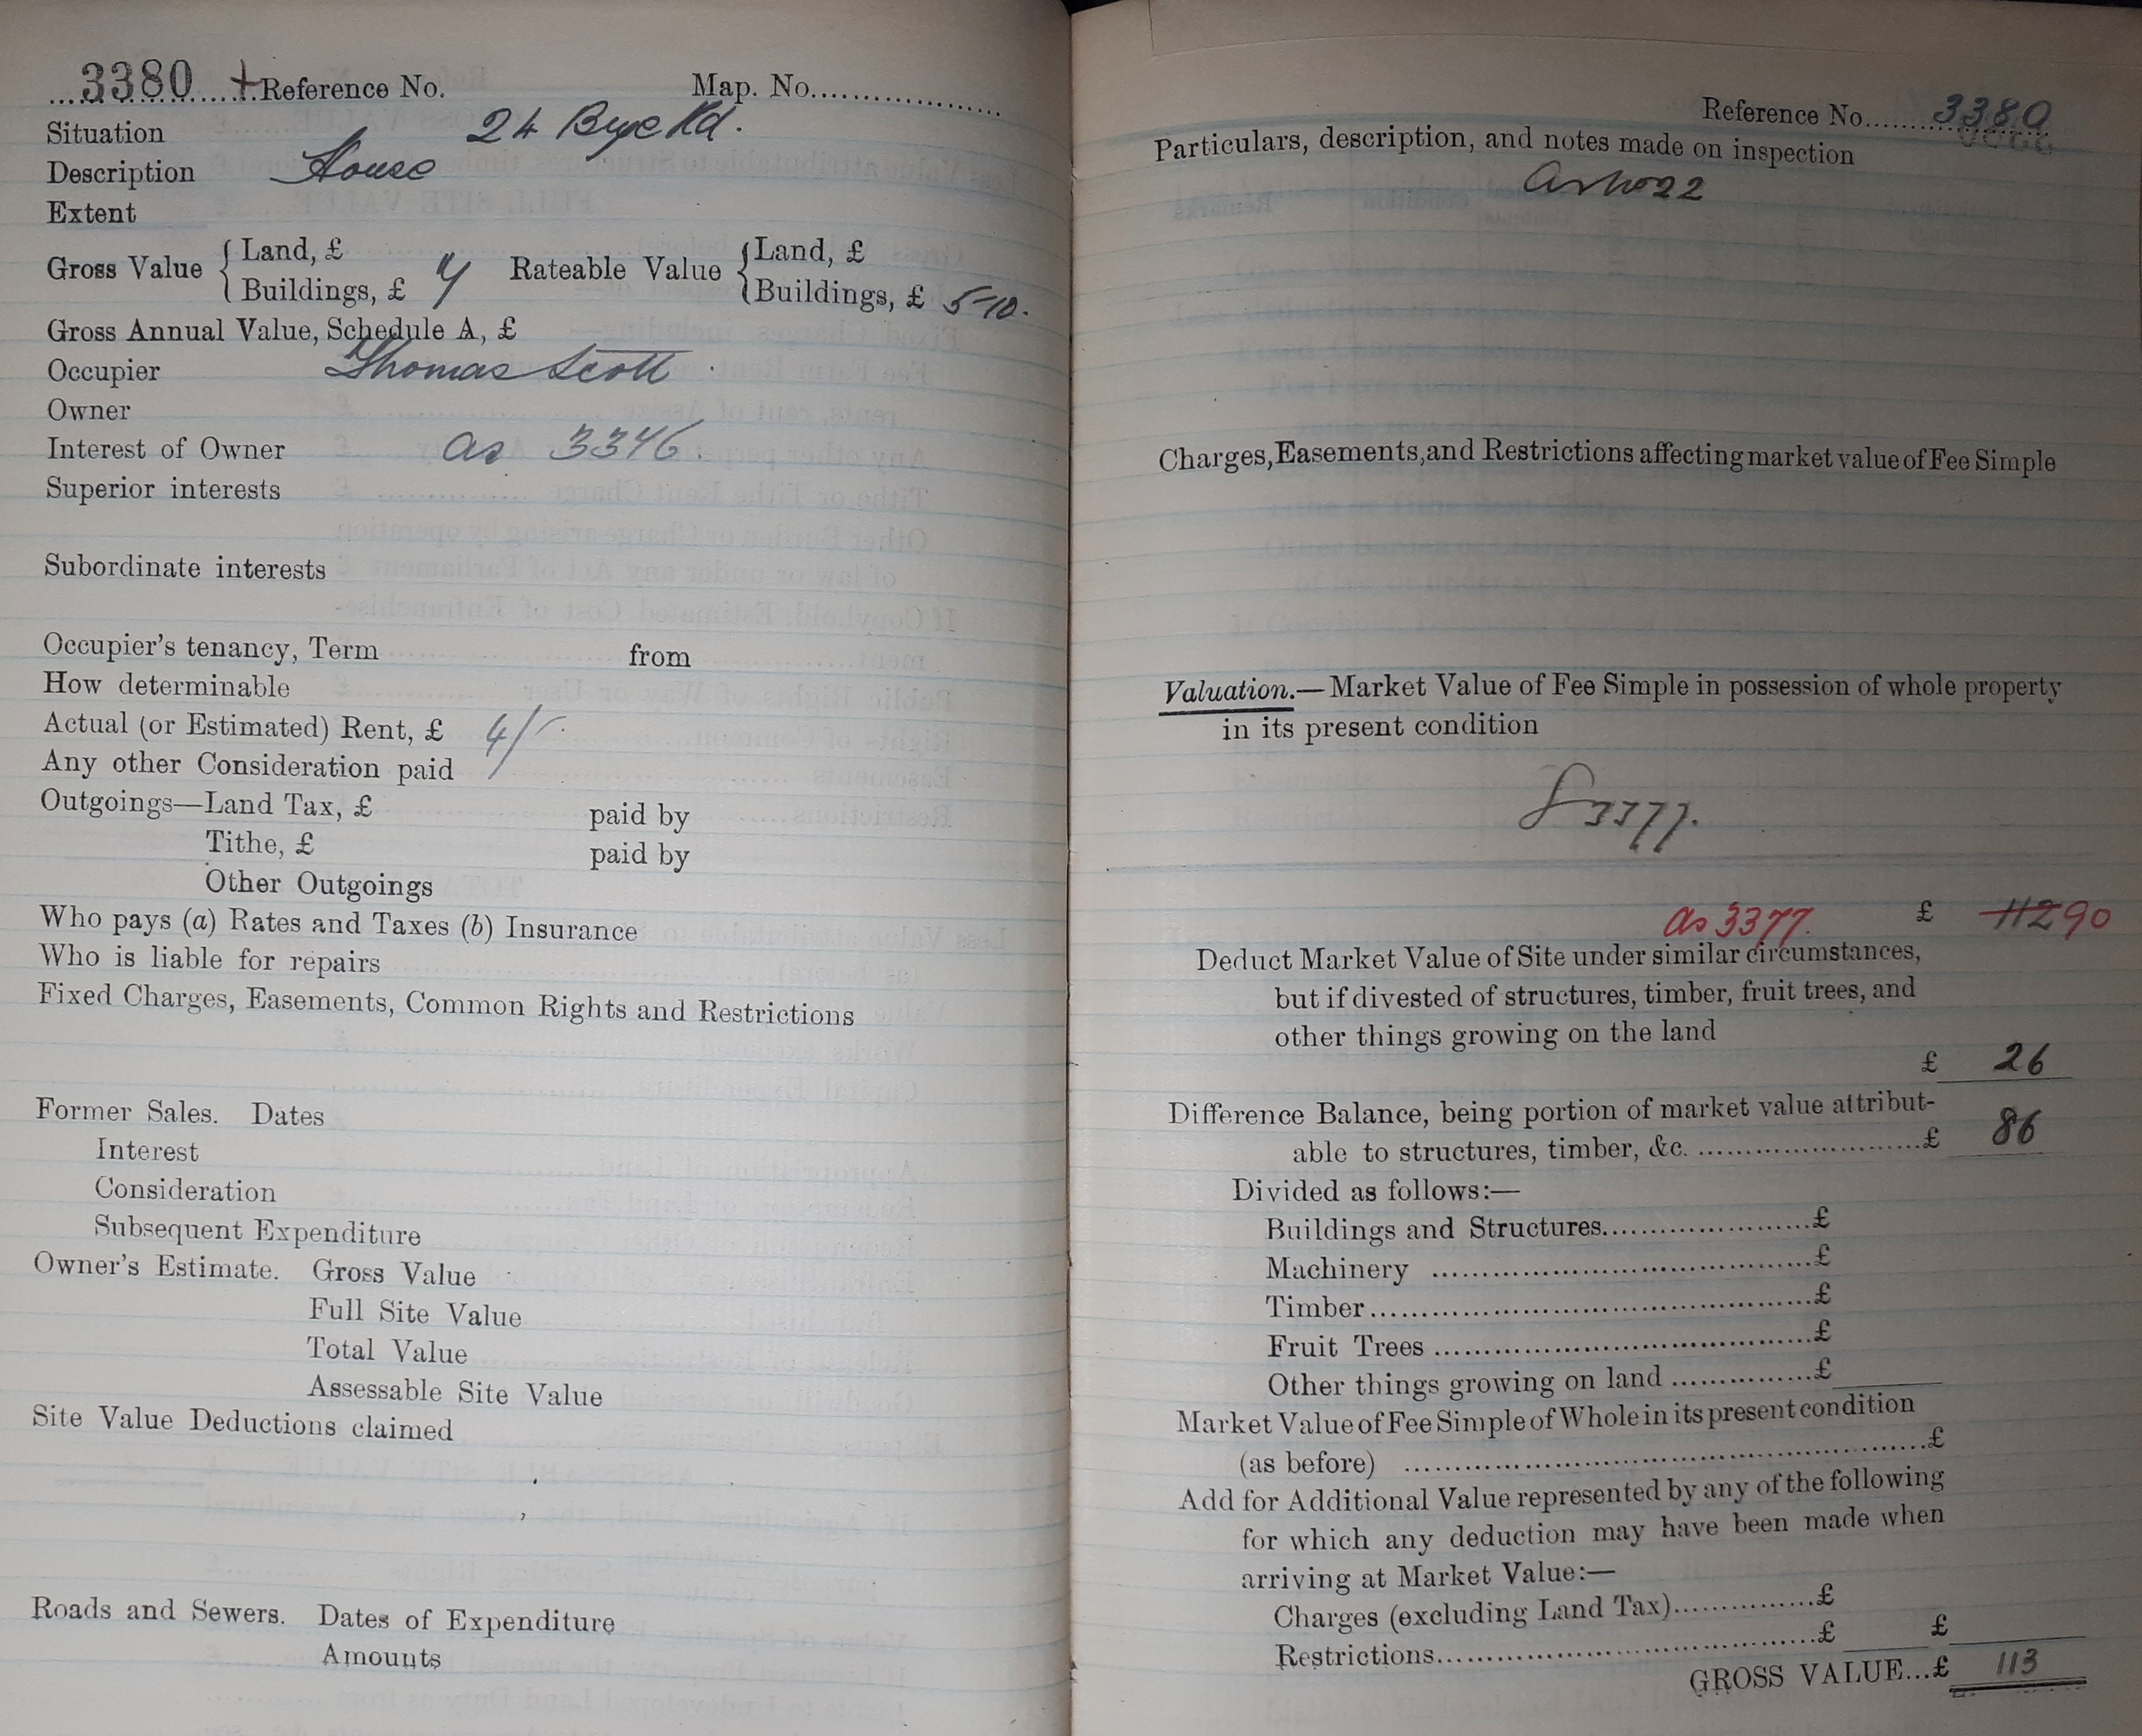 3380 + Reference No. Map. No....................
Situation 24 Bye Rd.
Description House
Extent
Gross Value { Land, £ Rateable Value { Land, £
Buildings, £ Buildings, £ 5-10.
Gross Annual Value, Schedule A, £
Occupier Thomas Scott
Owner
Interest of Owner as 3346.
Superior interests
Subordinate interests
Occupier's tenancy, Term from
How determinable
Actual (or Estimated) Rent, £ 4/-
Any other Consideration paid
Outgoings—Land Tax, £ paid by
Tithe, £ paid by
Other Outgoings
Who pays (a) Rates and Taxes (b) Insurance
Who is liable for repairs
Fixed Charges, Easements, Common Rights and Restrictions
Former Sales. Dates
Interest
Consideration
Subsequent Expenditure
Owner's Estimate. Gross Value
Full Site Value
Total Value
Assessable Site Value
Site Value Deductions claimed
Roads and Sewers. Dates of Expenditure
Amounts
Reference No. 3380
Particulars, description, and notes made on inspection
Charges, Easements, and Restrictions affecting market value of Fee Simple
Valuation.—Market Value of Fee Simple in possession of whole property
in its present condition
3377.
as 3377. £ 112 90
Deduct Market Value of Site under similar circumstances,
but if divested of structures, timber, fruit trees, and
other things growing on the land
£ 26
Difference Balance, being portion of market value attribut-
able to structures, timber, &c. ........................£ 86
Divided as follows:—
Buildings and Structures......................£
Machinery .......................................£
Timber..............................................£
Fruit Trees .......................................£
Other things growing on land ...............£
Market Value of Fee Simple of Whole in its present condition
(as before) .....................................................£
Add for Additional Value represented by any of the following
for which any deduction may have been made when
arriving at Market Value:—
Charges (excluding Land Tax)...............£
Restrictions.......................................£ £
GROSS VALUE...£ 113